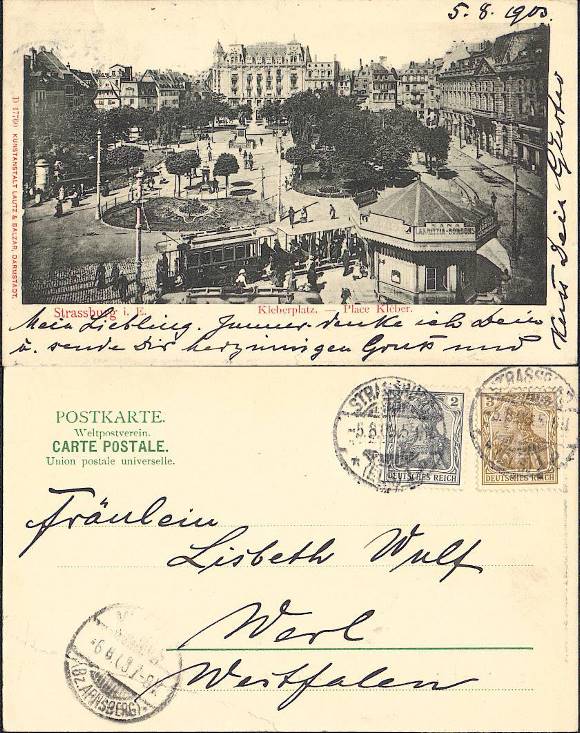 5. 8. 1903
D 1770 KUNSTANSTALT LAUTZ & BALZAR, DARMSTADT.
Strassburg i. E. Kleberplatz. — Place Kleber.
Mein Liebling. Immer denke ich Dein
u. sende Dir herzinnigen Gruss und
Kuss Dein Gustav
POSTKARTE.
Weltpostverein.
CARTE POSTALE.
Union postale universelle.
STRASSBURG
2
DEUTSCHES REICH
STRASSBURG
3
DEUTSCHES REICH
Fräulein
Lisbeth Wulf
Werl
Westfalen
(Bz. ARNSBERG)